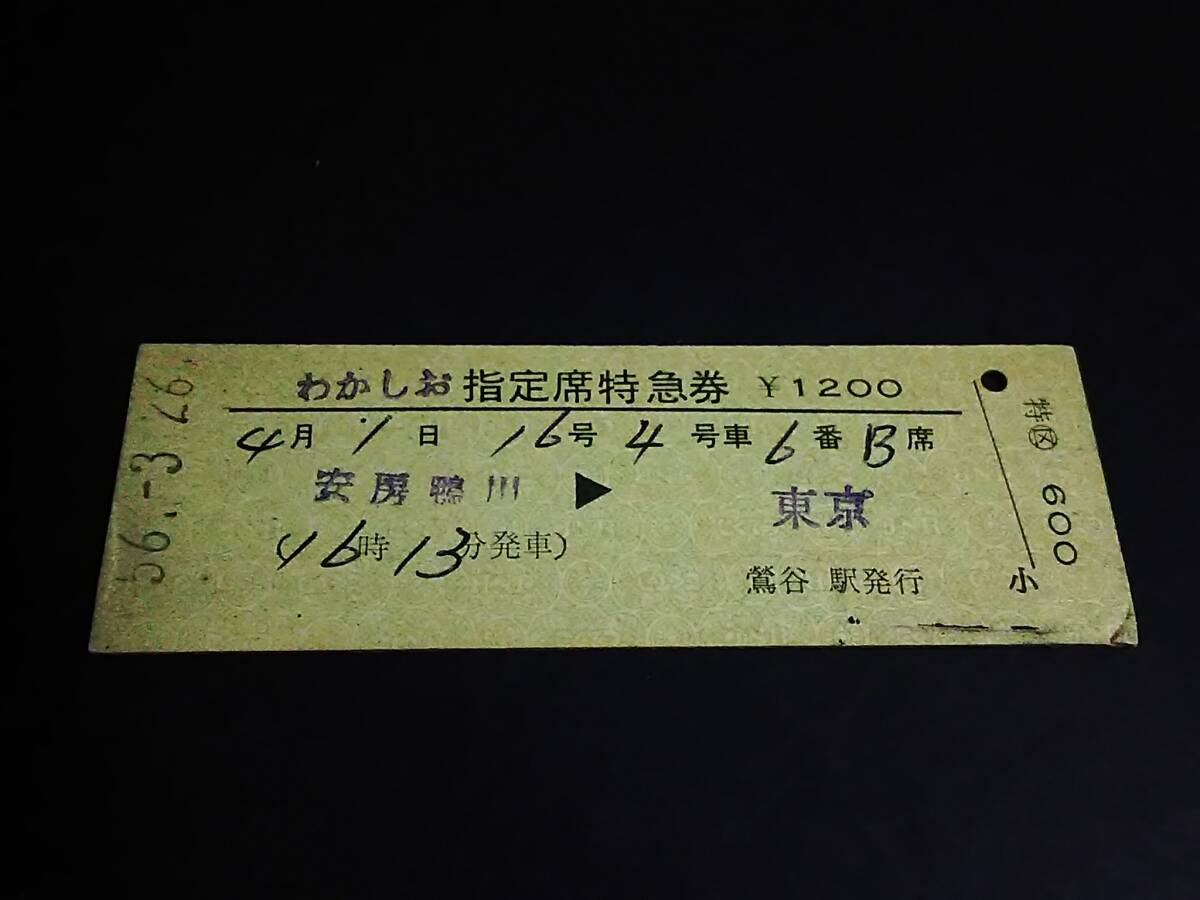 56.-3.26
わかしお 指定席特急券 ￥1200
4月1日 16号 4号車 6番 B席
安房鴨川 ▶ 東京
(16時13分発車)
鶯谷 駅発行
特区 600
小